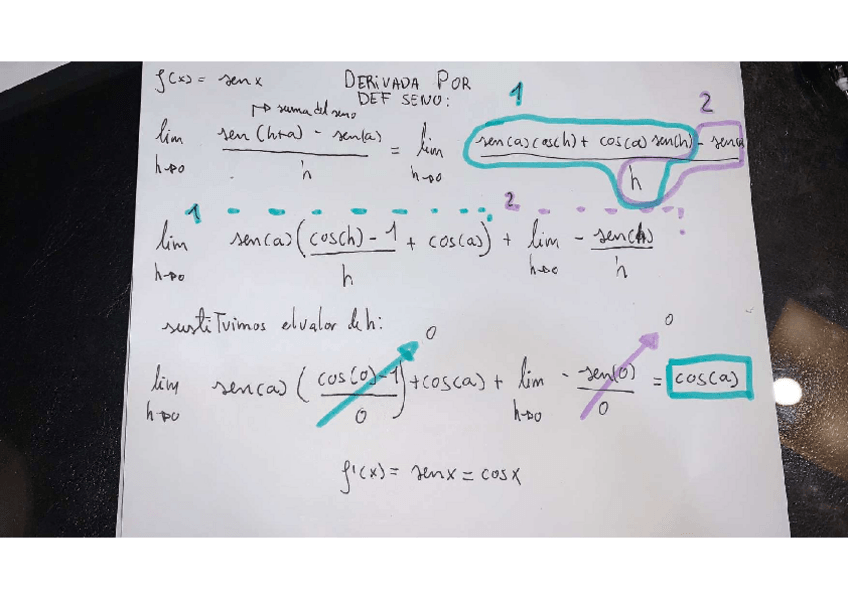 f(x) = senx DERIVADA POR
DEF SENO:
↦ suma del seno
1
2
lim sen(h+a) - sen(a) / h = lim sen(a)cos(h) + cos(a)sen(h) - sen(a / h
h→0 h→0
1 2
lim sen(a)(cos(h)-1 / h + cos(a)) + lim - sen(h) / h
h→0 h→0
sustituimos el valor de h:
0 0
lim sen(a)(cos(0)-1 / 0) + cos(a) + lim - sen(0) / 0 = cos(a)
h→0 h→0
f'(x) = senx = cosx